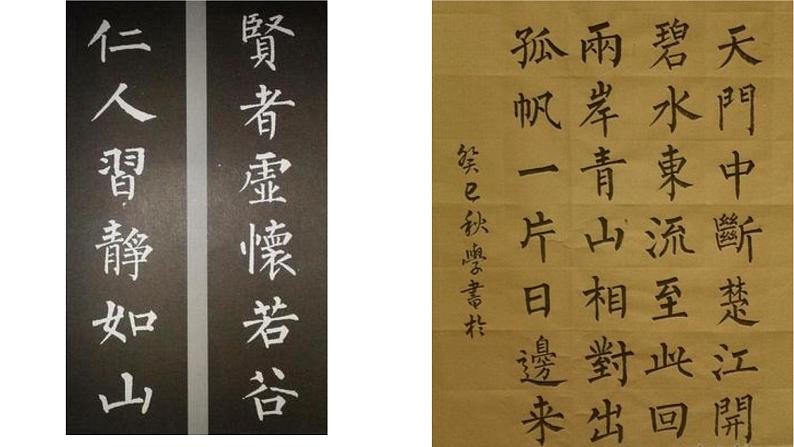 賢者虛懷若谷
仁人習靜如山
天門中斷楚江開
碧水東流至此回
兩岸青山相對出
孤帆一片日邊来
癸巳秋學書於